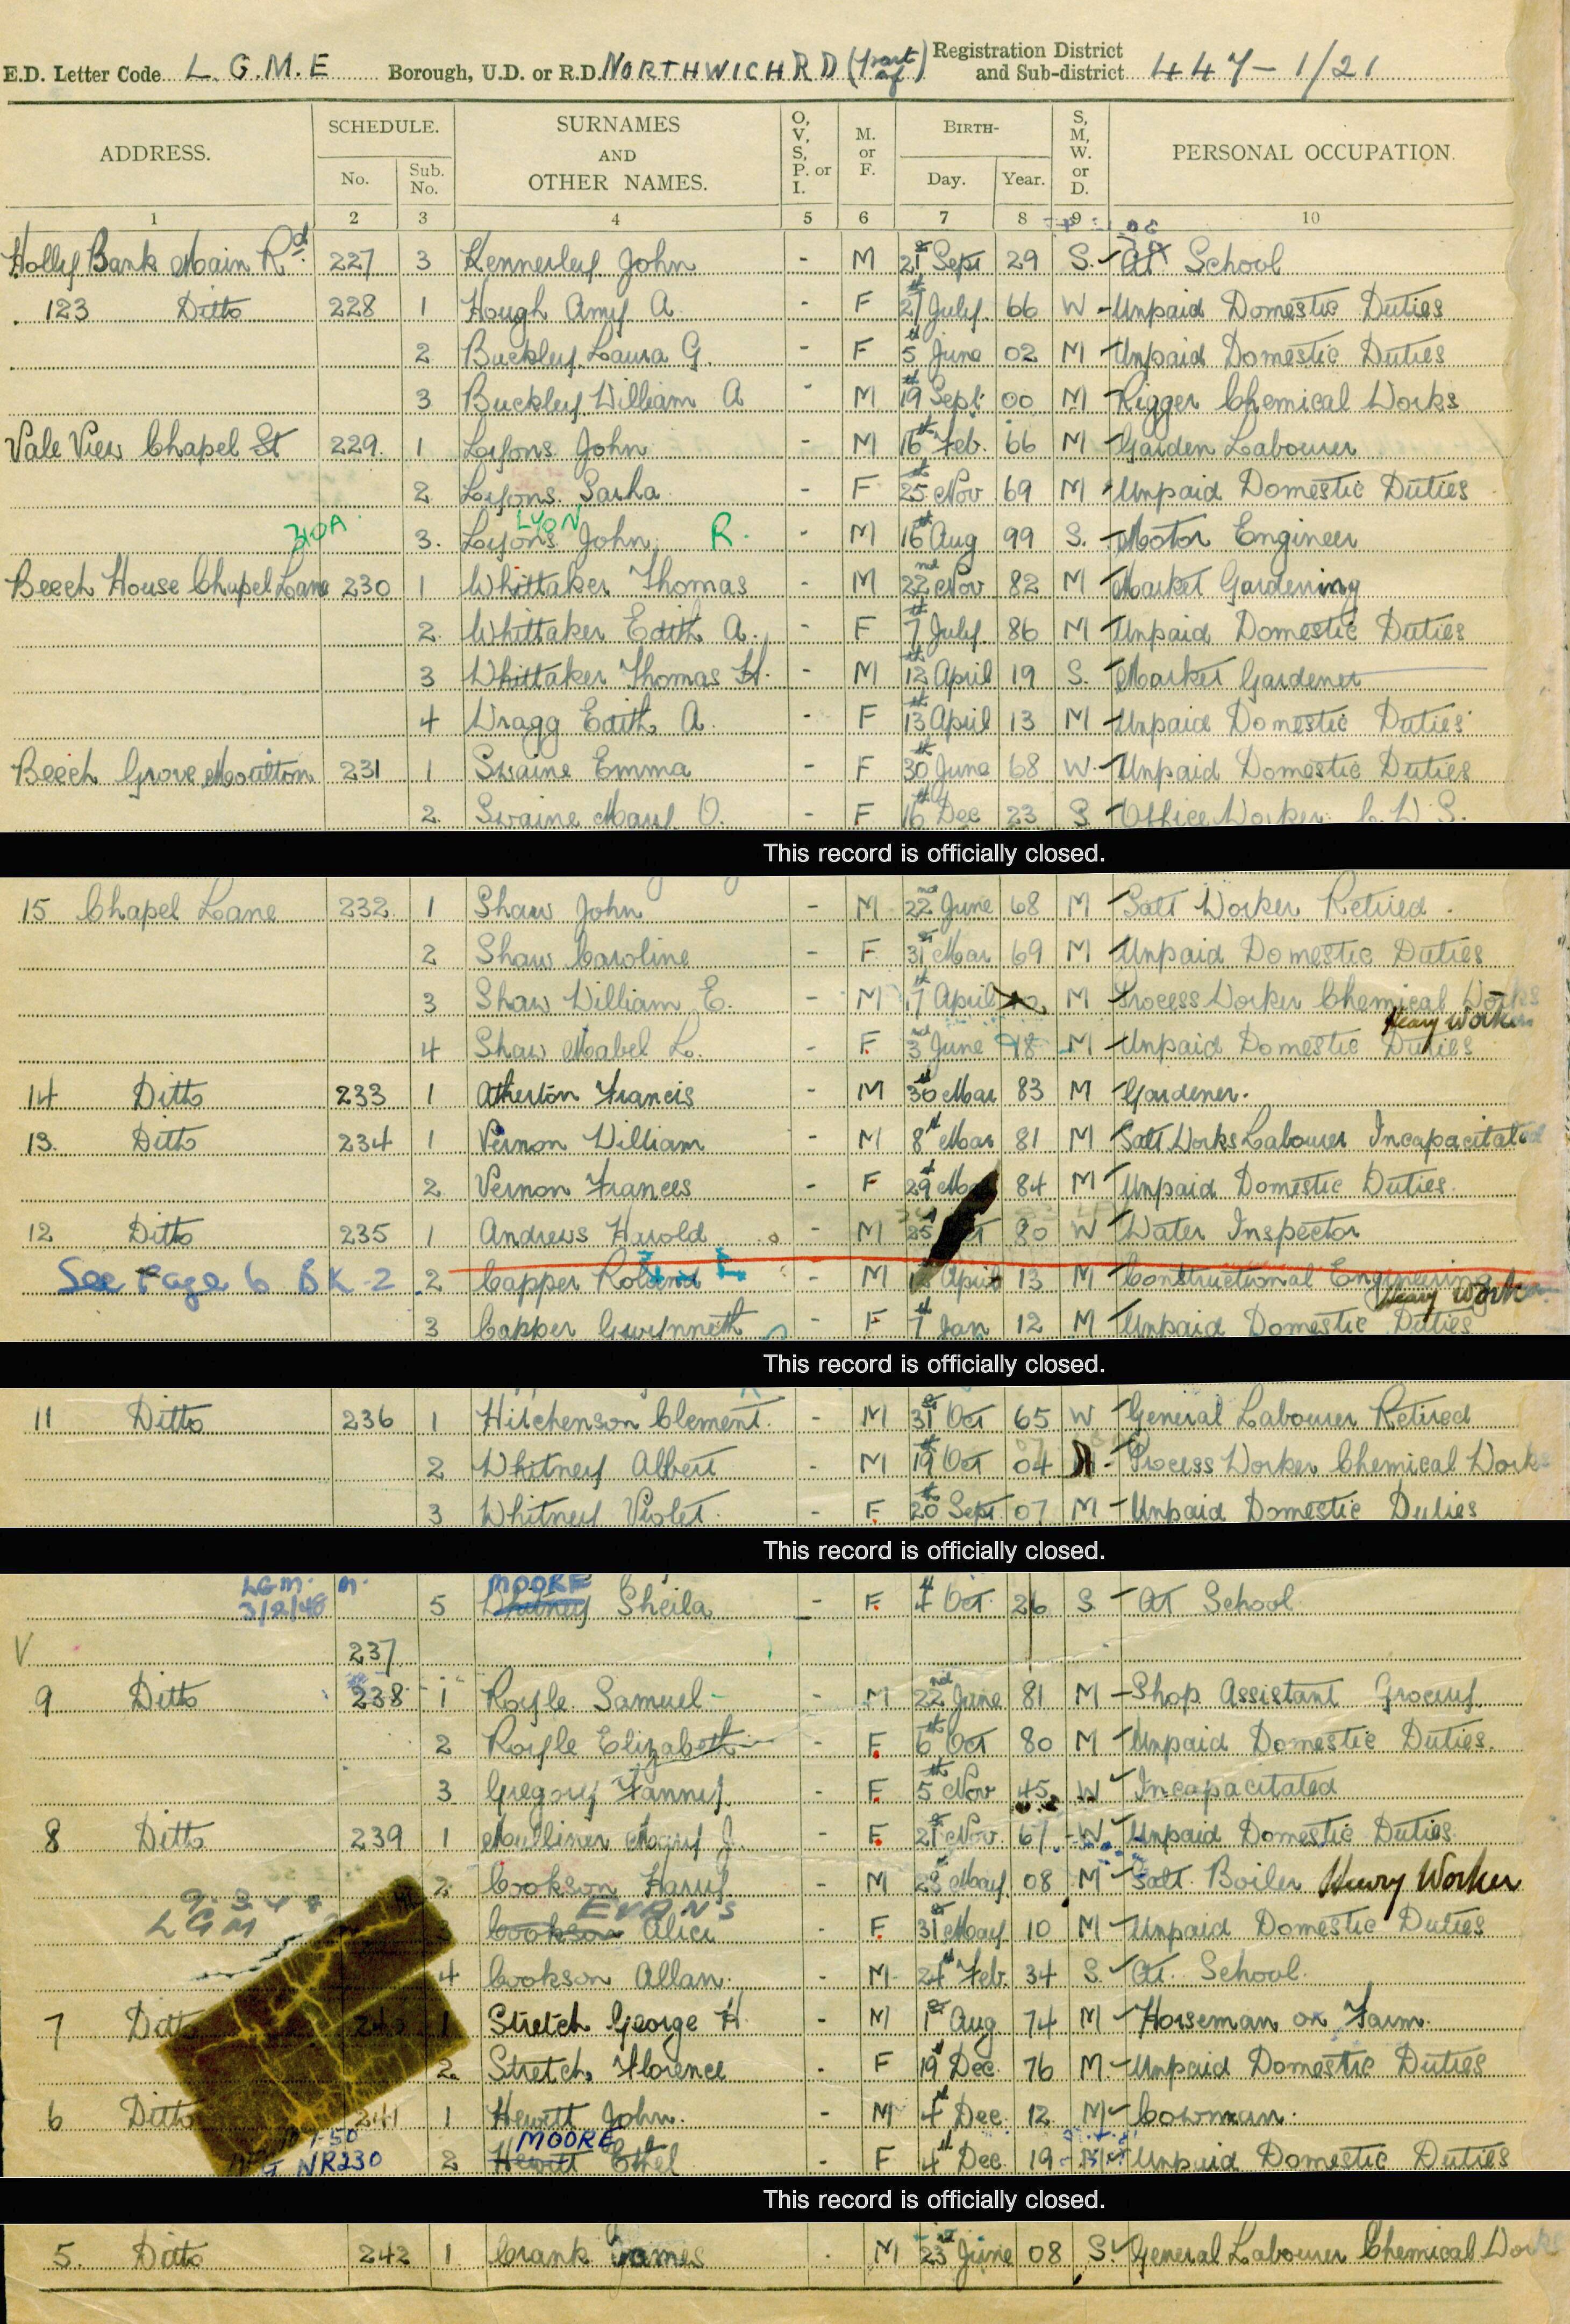 E.D. Letter Code L.G.M.E Borough, U.D. or R.D. NORTHWICH R D (Part of) Registration District and Sub-district 447-1/21
ADDRESS. SCHEDULE. No. Sub. No. SURNAMES AND OTHER NAMES. O, V, S, P. or I. M. or F. BIRTH- Day. Year. S, M, W. or D. PERSONAL OCCUPATION.
1 2 3 4 5 6 7 8 9 10
Holly Bank Main Rd 227 3 Kennerley John - M 21st Sept 29 S. At School
123 Ditto 228 1 Hough Amy A. - F 21st July 66 W Unpaid Domestic Duties
2 Buckley Laura G. - F 5th June 02 M Unpaid Domestic Duties
3 Buckley William A - M 19th Sept 00 M Rigger Chemical Works
Vale View Chapel St 229 1 Lyons John - M 16th Feb. 66 M Garden Labourer
2 Lyons Sarha - F 25th Nov 69 M Unpaid Domestic Duties
LYON
310A 3. Lyons John R. - M 16th Aug 99 S. Motor Engineer
Beech House Chapel Lane 230 1 Whittaker Thomas - M 22nd Nov 82 M Market Gardening
2 Whittaker Edith A. - F 7th July 86 M Unpaid Domestic Duties
3 Whittaker Thomas H. - M 12th April 19 S. Market Gardener
4 Wragg Edith A. - F 13th April 13 M Unpaid Domestic Duties
Beech Grove Moulton 231 1 Swaine Emma - F 30th June 68 W Unpaid Domestic Duties
2. Swaine Mary O. - F 16th Dec 23 S Office Worker C.W.S.
This record is officially closed.
15 Chapel Lane 232 1 Shaw John - M 22nd June 68 M Salt Worker Retired
2 Shaw Caroline - F 31st Mar 69 M Unpaid Domestic Duties
3 Shaw William E. - M 17th April M Process Worker Chemical Works
Heavy Worker
4 Shaw Mabel L. - F 3rd June 18 M Unpaid Domestic Duties
14 Ditto 233 1 Atherton Francis - M 30th Mar 83 M Gardener.
13. Ditto 234 1 Vernon William - M 8th Mar 81 M Salt Works Labourer Incapacitated
2 Vernon Frances - F 29th 84 M Unpaid Domestic Duties.
12 Ditto 235 1 Andrews Harold - M 25 80 W Water Inspector
See Page 6 BK 2 2 Capper - M April 13 M Constructional Engineering
Heavy Work
3 Capper Gwynneth - F 7th Jan 12 M Unpaid Domestic Duties
This record is officially closed.
11 Ditto 236 1 Hitchenson Clement. - M 31st Oct 65 W General Labourer Retired
2 Whitney Albert - M 19th Oct 04 Process Worker Chemical Works
3 Whitney Violet - F. 20th Sept 07 M Unpaid Domestic Duties
This record is officially closed.
LGM. M. MOORE
3/2/48 5 Whitney Sheila - F. 4th Oct. 26 S. At School
V 237
9 Ditto 238 1 Royle Samuel - M 22nd June 81 M Shop Assistant Grocery
2 Royle Elizabeth - F. 6th Oct 80 M Unpaid Domestic Duties.
3 Gregory Fanny - F. 5th Nov 45 W Incapacitated
8 Ditto 239 1 Mulliner Mary J. - F. 21st Nov 67 W Unpaid Domestic Duties
2 Cookson Harry - M 23 May 08 M Salt Boiler Heavy Worker
EVANS
LGM Cookson Alice - F. 31st May 10 M Unpaid Domestic Duties
4 Cookson Allan. - M 24th Feb. 34 S. At School.
7 Ditto 240 1 Stretch George H. - M 1st Aug 74 M Horseman on Farm.
2. Stretch Florence - F 19th Dec. 76 M Unpaid Domestic Duties
6 Ditto 241 1 Hewitt John. - M 4th Dec. 12 M Cowman.
MOORE
NR230 2 Hewitt Ethel - F 4th Dec. 19 M Unpaid Domestic Duties
This record is officially closed.
5. Ditto 242 1. Crank James M 23rd June 08 S. General Labourer Chemical Works